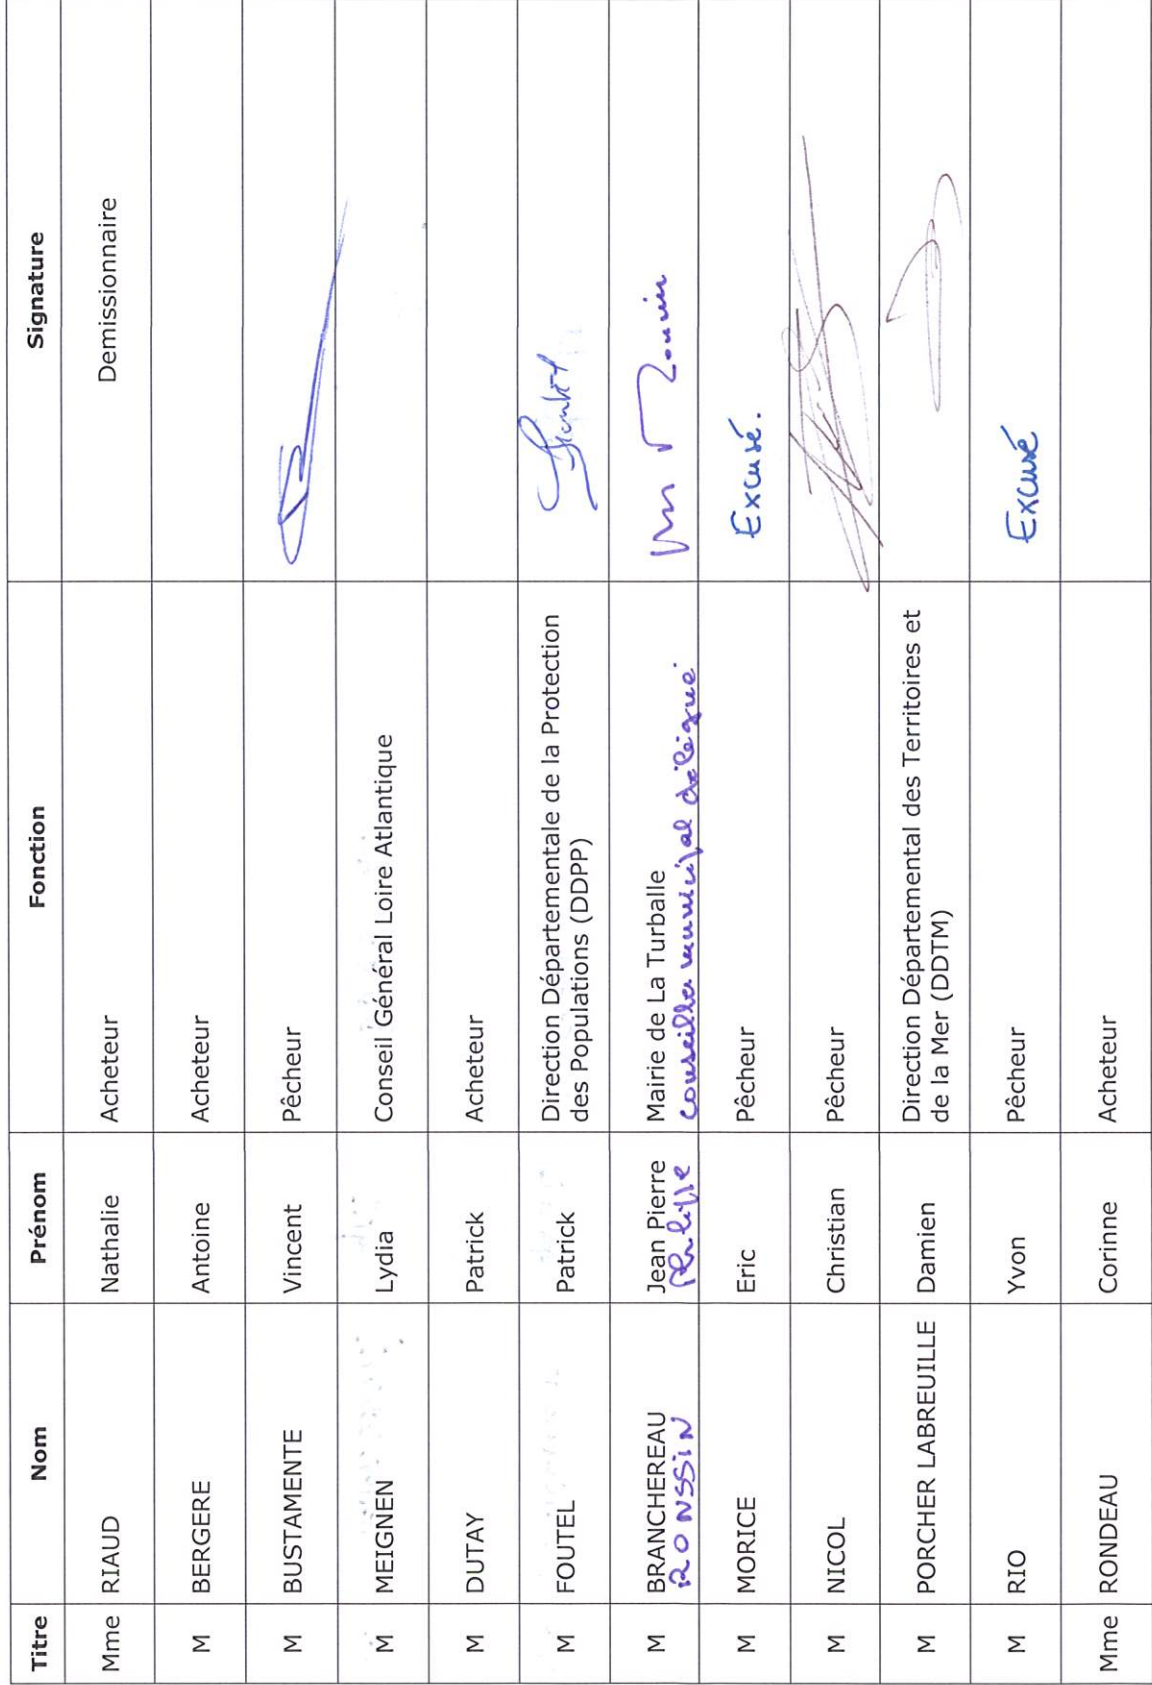 Titre Nom Prénom Fonction Signature
Mme RIAUD Nathalie Acheteur Demissionnaire
M BERGERE Antoine Acheteur
M BUSTAMENTE Vincent Pêcheur
M MEIGNEN Lydia Conseil Général Loire Atlantique
M DUTAY Patrick Acheteur
M FOUTEL Patrick Direction Départementale de la Protection
des Populations (DDPP)
M BRANCHEREAU Jean Pierre Mairie de La Turballe
RONSSIN Philippe conseiller municipal délégué
M MORICE Eric Pêcheur Excusé.
M NICOL Christian Pêcheur
M PORCHER LABREUILLE Damien Direction Départemental des Territoires et
de la Mer (DDTM)
M RIO Yvon Pêcheur Excusé
Mme RONDEAU Corinne Acheteur